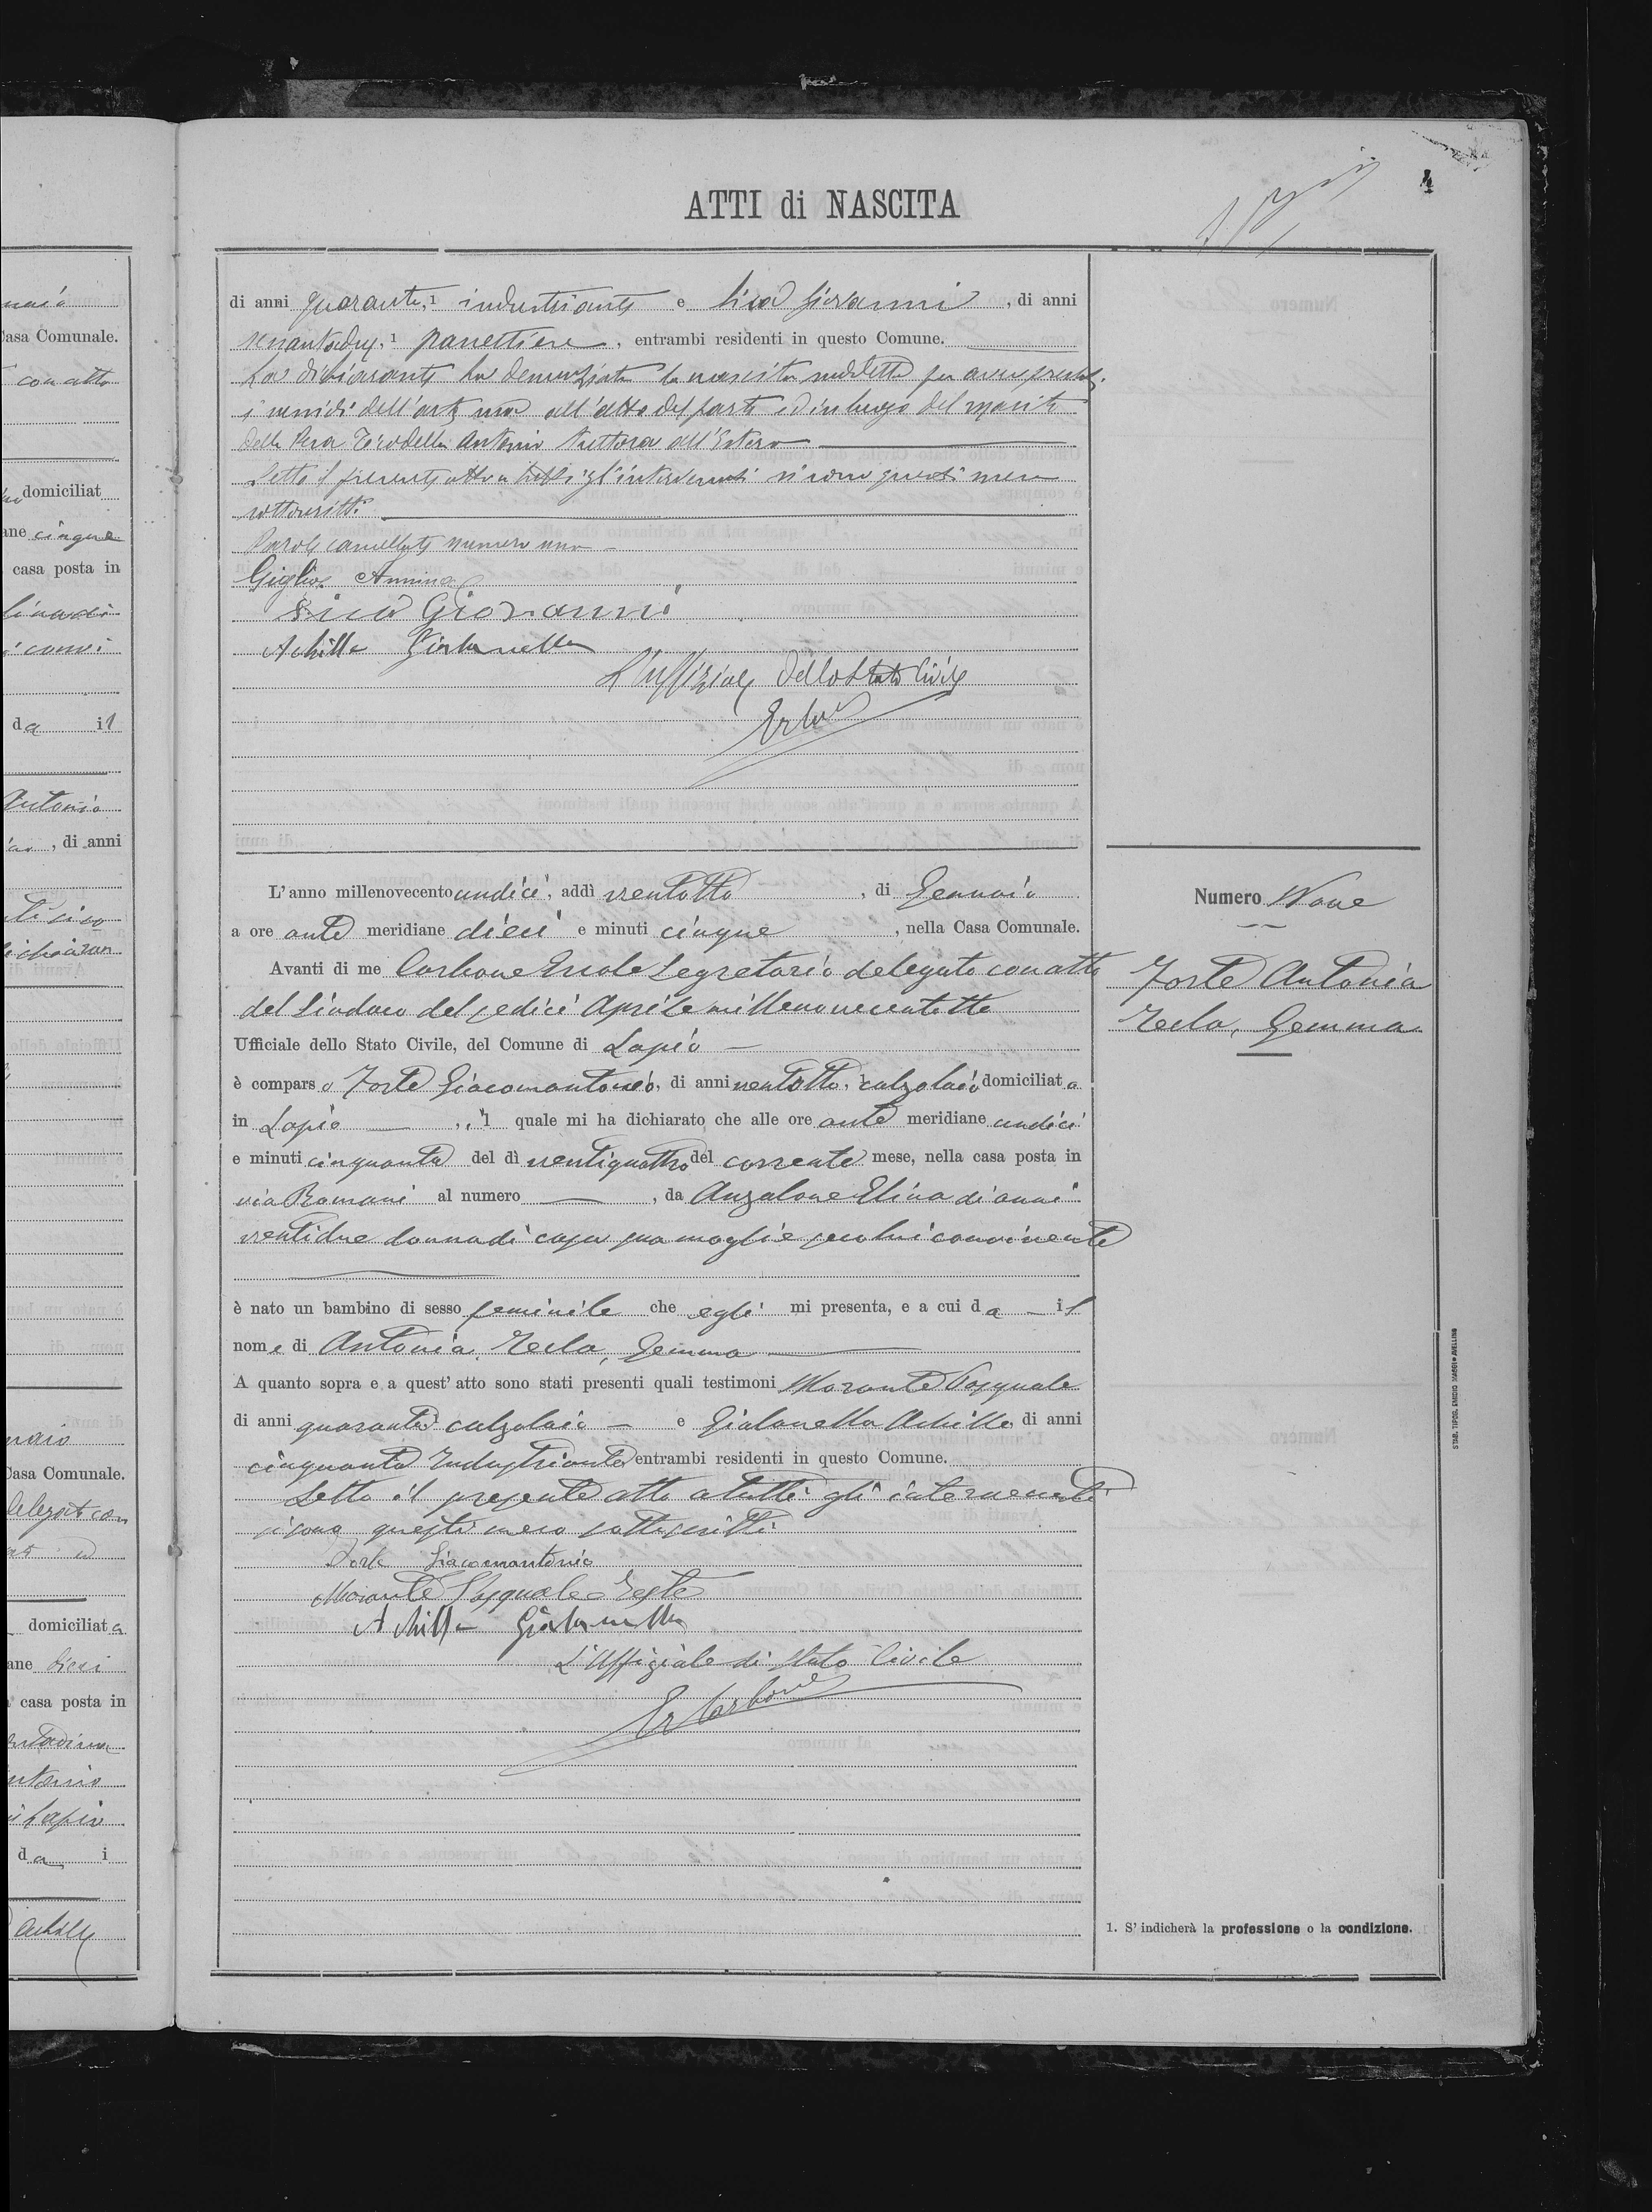 naio
Casa Comunale.
con atto
domiciliat
ane cinque
casa posta in
da il
Antonio
, di anni
naio
Casa Comunale.
delegato con
domiciliata
ane dieci
casa posta in
contadina
Antonio
Lapio
da i
Achille
ATTI di NASCITA
4
di anni quaranta, 1 industriante e Sica Giovanni, di anni
sessantadue, 1 panettiere, entrambi residenti in questo Comune.
La dichiarante ha denunziato la nascita suddetta per aver prestat.
i sussidi dell'arte sua all'atto del parto ed in luogo del marito
della Antonio tuttora all'Estero
Letto il presente atto a tutti gl'intervenuti si sono questi meco
sottoscritti
Parole cancellate numero una
Giglio Annina
Sica Giovanni
Achille Gialanella
L'Uffiziale dello Stato Civile
L'anno millenovecento undici, addì ventotto, di Gennaio
a ore ante meridiane dieci e minuti cinque, nella Casa Comunale.
Avanti di me Carbone Ercole Segretario delegato con atto
del Sindaco del sedici Aprile millenovecentotto
Ufficiale dello Stato Civile, del Comune di Lapio
è comparso Forte Giacomantonio, di anni ventotto, calzolaio domiciliato
in Lapio, il quale mi ha dichiarato che alle ore ante meridiane undici
e minuti cinquanta del dì ventiquattro del corrente mese, nella casa posta in
via Romani al numero —, da Anzalone Elina di anni
ventidue donna di casa sua moglie seco lui convivente
è nato un bambino di sesso feminile che egli mi presenta, e a cui da il
nome di Antonia, Tecla, Gemma
A quanto sopra e a quest'atto sono stati presenti quali testimoni Morante Pasquale
di anni quaranta calzolaio — e Gialanella Achille di anni
cinquanta Industriante entrambi residenti in questo Comune.
Letto il presente atto a tutti gli intervenuti
si sono questi meco sottoscritti
Forte Giacomantonio
Morante Pasquale Teste
Achille Gialanella
L'Uffiziale di Stato Civile
Er Carbone
Numero Nove
Forte Antonia
Tecla, Gemma
1. S'indicherà la professione o la condizione.